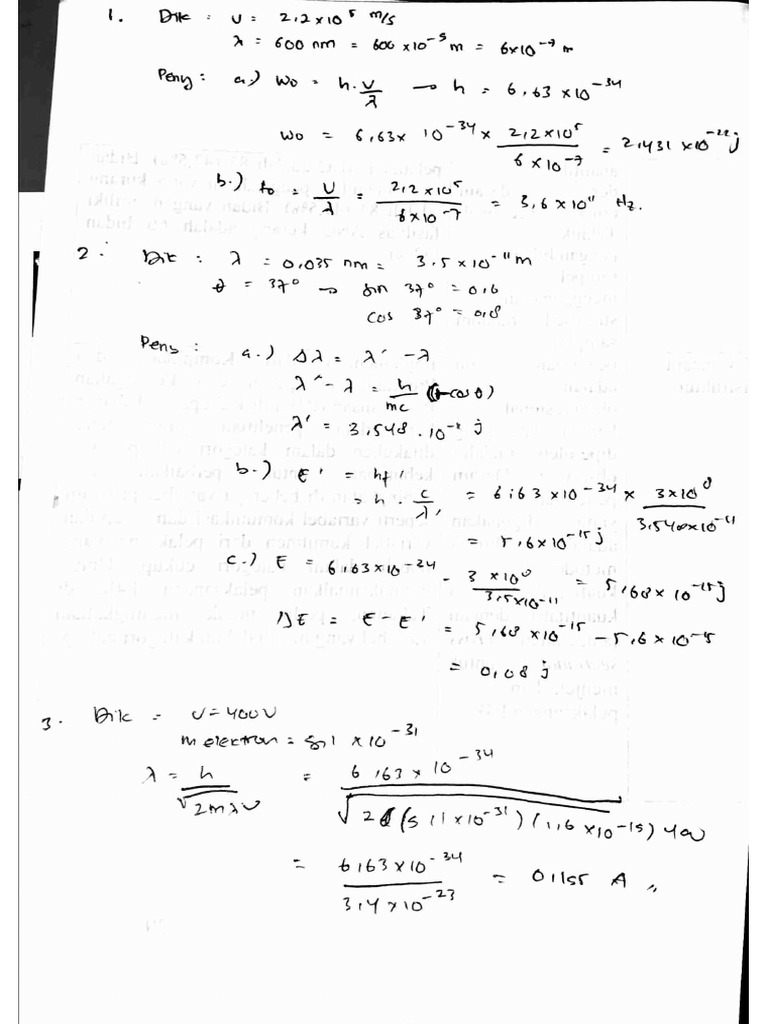 1. Dik : v = 2,2 x 10⁵ m/s
λ = 600 nm = 600 x 10⁻⁹ m = 6x10⁻⁷ m
Peny : a.) Wo = h. v/λ → h = 6,63 x 10⁻³⁴
Wo = 6,63x 10⁻³⁴ x 2,2x10⁵ / 6 x 10⁻⁷ = 2,431 x10⁻²² j
b.) fo = v/λ = 2,2 x 10⁵ / 6x10⁻⁷ = 3,6 x 10¹¹ Hz.
2. Dik : λ = 0,035 nm = 3.5 x 10⁻¹¹ m
θ = 37° → sin 37° = 0,6
cos 37° = 0,8
Peny : a.) Δλ = λ' - λ
λ' - λ = h/mc (1-cos θ)
λ' = 3,548 . 10⁻¹¹ j
b.) E' = hf'
= h . c/λ' = 6,63 x 10⁻³⁴ x 3x10⁸ / 3,548x10⁻¹¹
= 5,6x10⁻¹⁵ j
c.) E = 6,63x10⁻²⁴ - 3 x10⁸ / 3,5x10⁻¹¹ = 5,68 x 10⁻¹⁵ j
ΔE = E - E' = 5,68 x10⁻¹⁵ - 5,6 x 10⁻¹⁵
= 0,08 j
3. Dik = V = 400V
m elektron = 9,1 x10⁻³¹
λ = h / √2mλv = 6,63 x 10⁻³⁴ / √2 (9,11 x10⁻³¹) (1,6 x10⁻¹⁹) 400
= 6,63 x10⁻³⁴ / 3,4 x 10⁻²³ = 0,155 A //